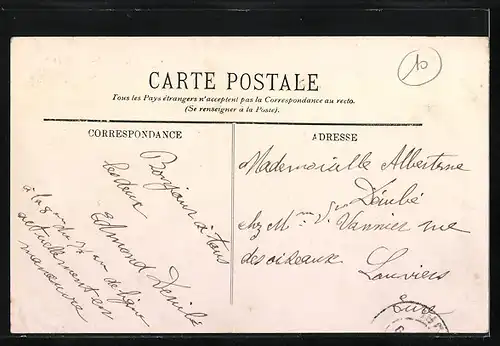 10
CARTE POSTALE
Tous les Pays étrangers n'acceptent pas la Correspondance au recto.
(Se renseigner à la Poste).
CORRESPONDANCE
ADRESSE
Bonjour à tous
les deux
Edmond Dénibé
à la 8
du
de ligne
actuellement en
manœuvre
Mademoiselle Albertine
Dénibé
chez Mme Vve Vannier rue
des oiseaux
Louviers
Eure